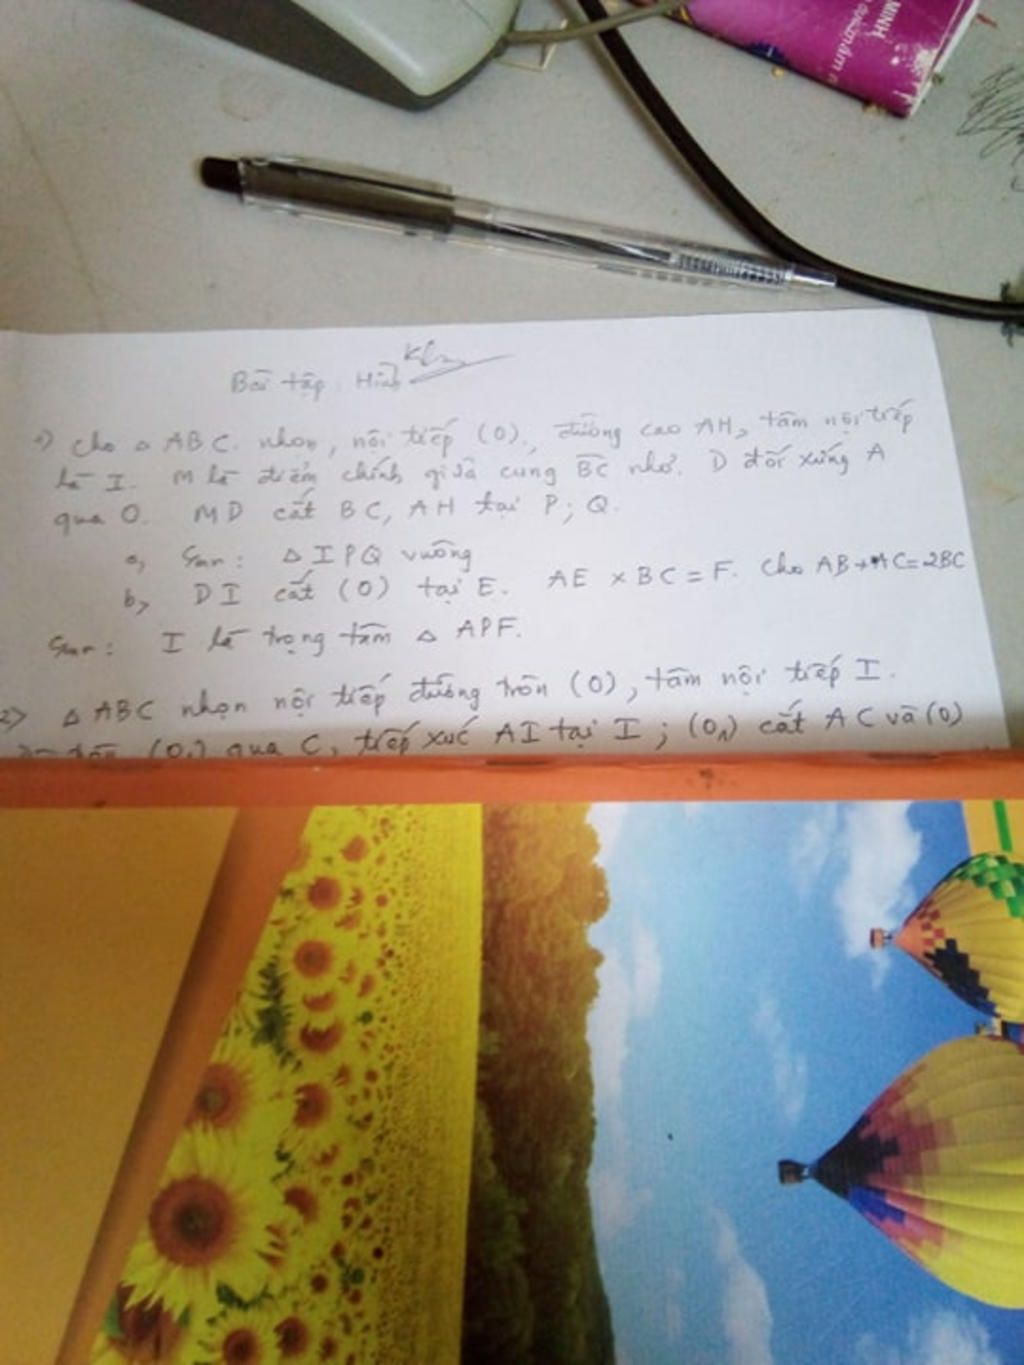 MINH
Bài tập Hình
1) Cho △ ABC nhọn, nội tiếp (O), đường cao AH, tâm nội tiếp
là I. M là điểm chính giữa cung BC nhỏ. D đối xứng A
qua O. MD cắt BC, AH tại P; Q.
a, Cmr: △ IPQ vuông
b, DI cắt (O) tại E. AE x BC = F. Cho AB + AC = 2BC
Cmr: I là trọng tâm △ APF.
2) △ ABC nhọn nội tiếp đường tròn (O), tâm nội tiếp I.
qua C, tiếp xúc AI tại I; (O₁) cắt AC và (O)